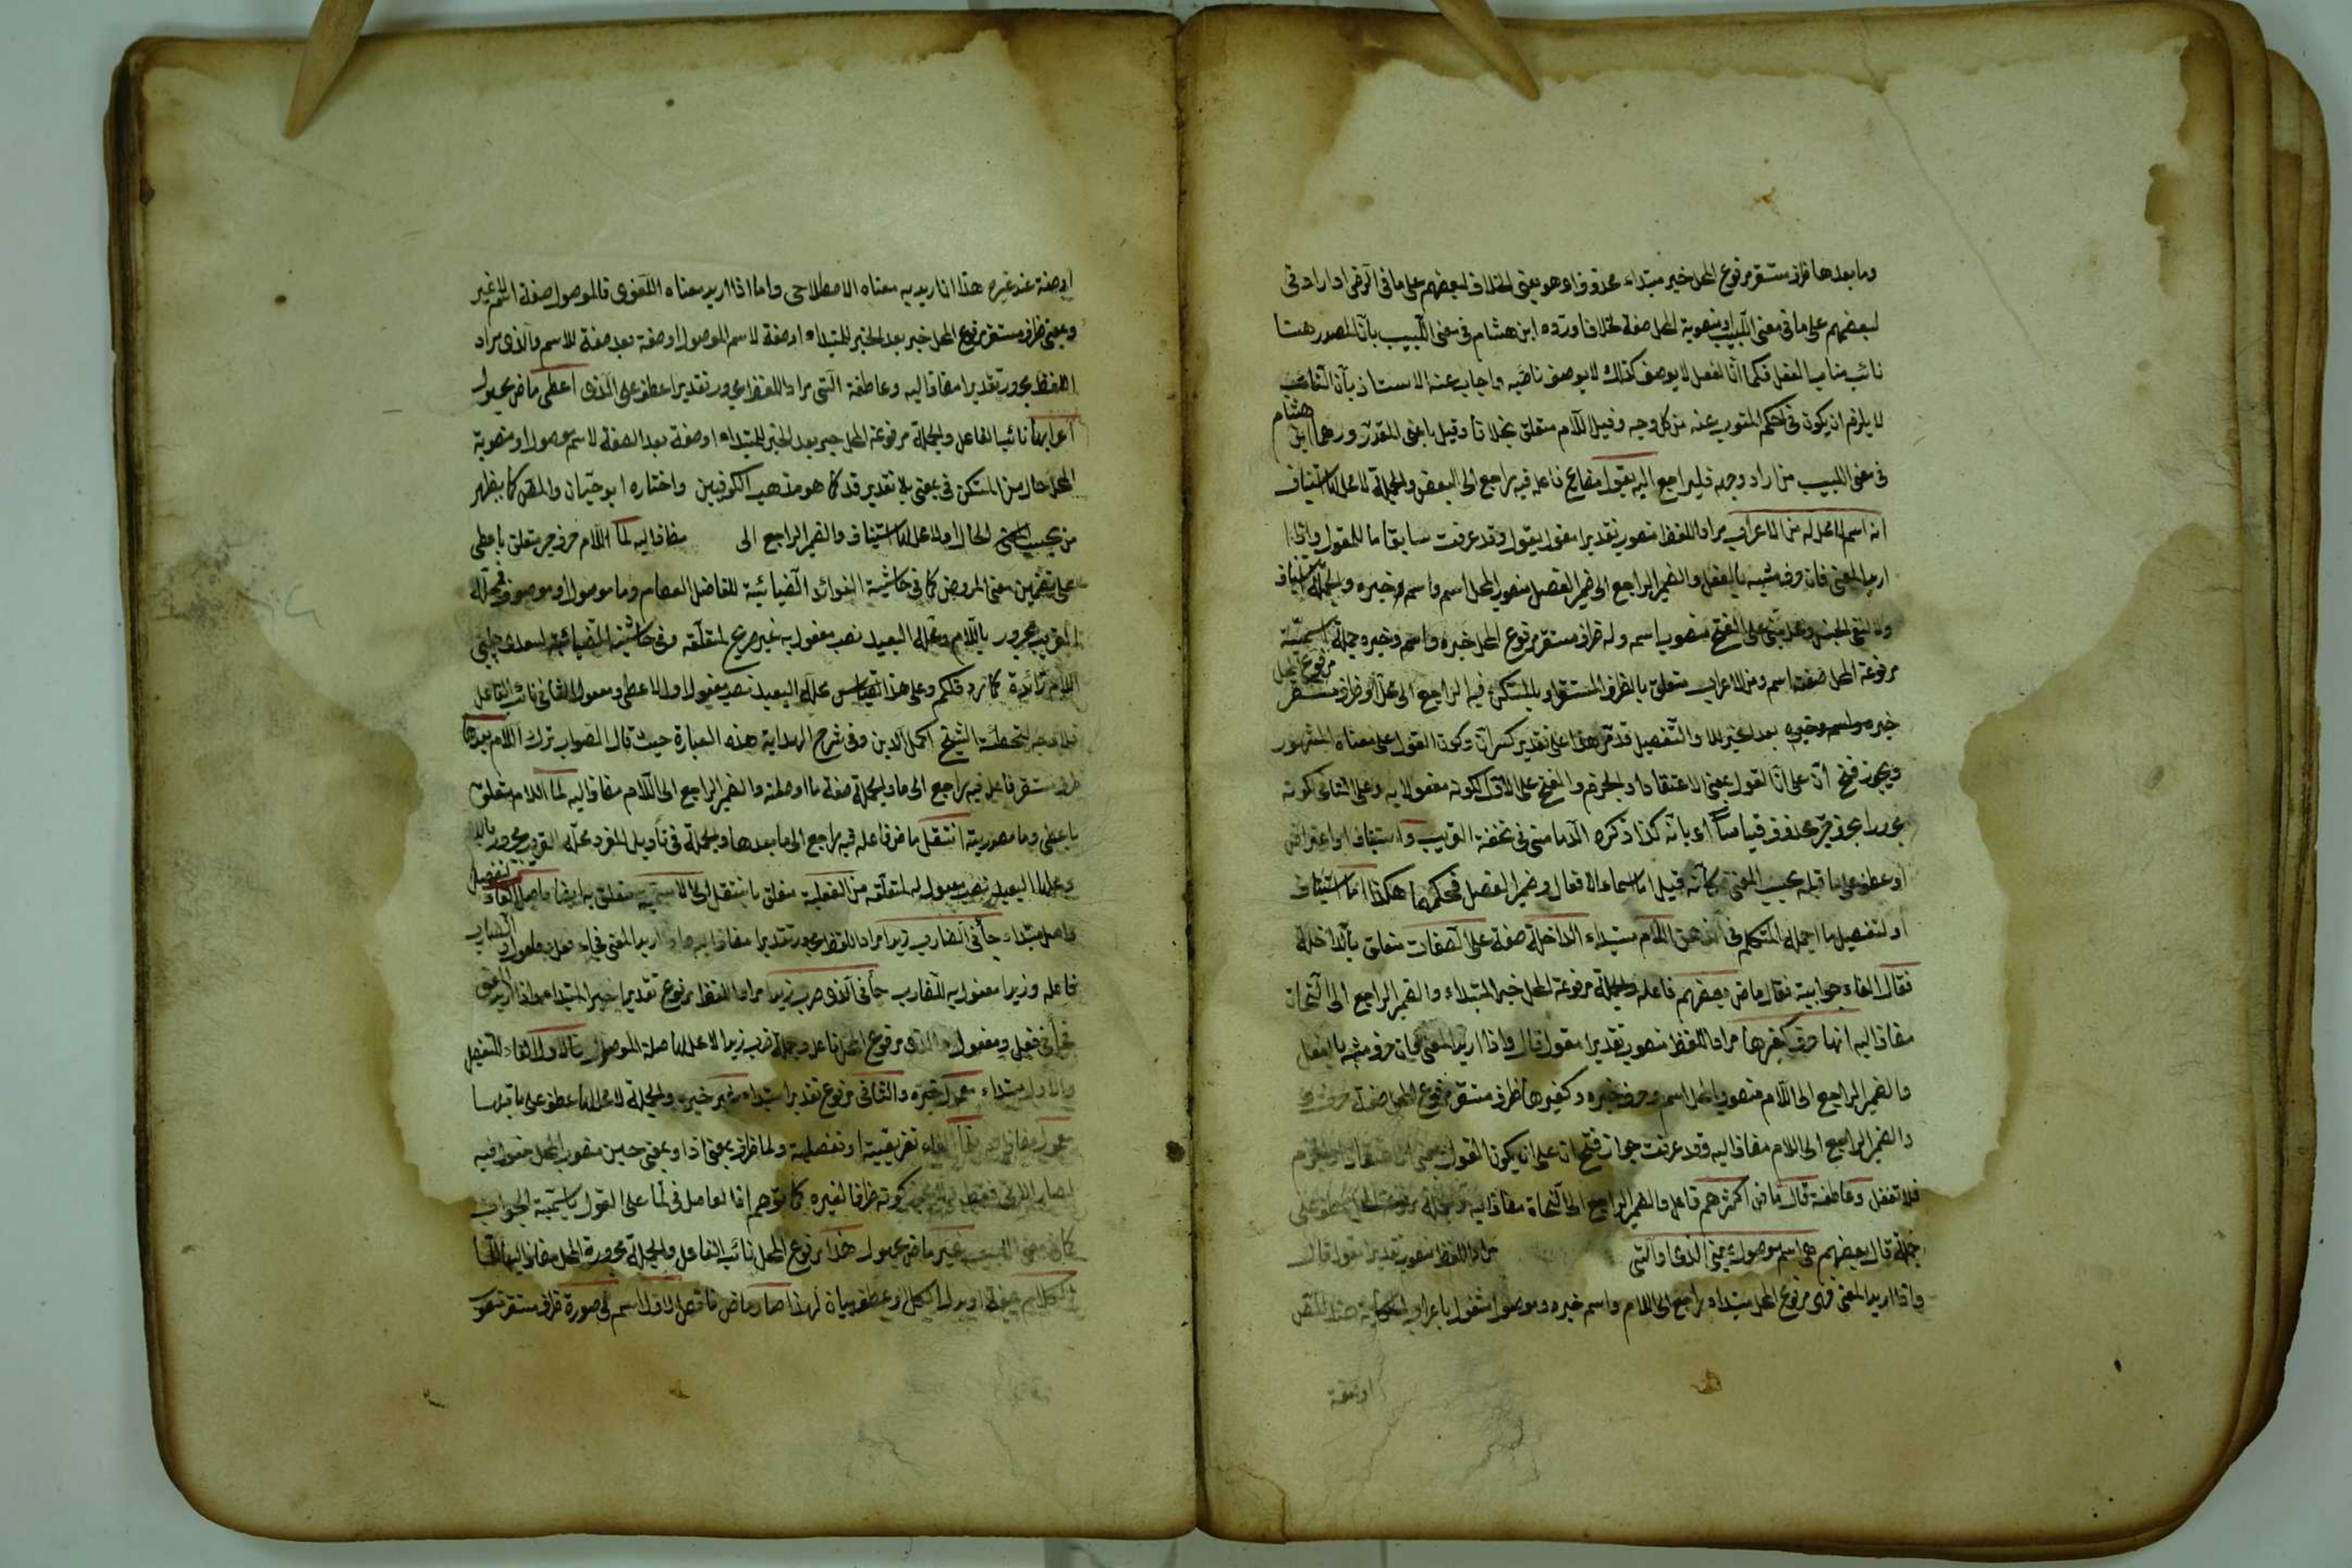 وما بعدها ظرف مستقر مرفوع المحل خبر مبتداء محذوف اى وهو يعنى الخلاف لبعضهم على ما فى الرضى او اراد فى
لبعضهم على ما فى مغنى اللبيب او منصوبة المحل صفة لخلافا ورده ابن هشام فى مغنى اللبيب بان المصدر هنا
نائب مناب الفعل فكما ان الفعل لا يوصف كذلك لا يوصف نائبه واجاب عنه الاستاذ بان النائب
لا يلزم ان يكون فى حكم المنوب عنه من كل وجه وقيل اللام متعلق بخلافا وقيل باعنى المقدر وردهما ابن هشام
فى مغنى اللبيب من اراد وجهه فليراجع اليه يقول مضارع فاعله فيه راجع الى البعض والجملة لا محل لها استيناف
انه اسم لا محل له من الاعراب مراد اللفظ منصوب تقديرا مقول يقول وقد عرفت سابقا ما للمقول واذا
اريد المعنى فان حرف مشبه بالفعل والضمير الراجع الى ضمير الفصل منصوب المحل اسم واسم خبره والجملة استيناف
ولا لنفى الجنس ومحل مبنى على الفتح منصوب اسمه وله ظرف مستقر مرفوع المحل خبره واسمه وخبره جملة اسمية
مرفوعة المحل صفة اسم ومن الاعراب متعلق بالظرف المستقر او بالمستكن فيه الراجع الى محل او ظرف مستقر مرفوع المحل
خبره بعد خبر للا والتفصيل قد مر هذا على تقدير كسر ان وكون القول على معناه المشهور
ويجوز فتح ان على ان القول بمعنى الاعتقاد او الجزم والفتح على الاول لكونه مفعولا به وعلى الثانى كونه
مجرورا بجر محذوف قياسا اى بانه كذا ذكره الدمامينى فى تحفة الغريب واستيناف او اعتراض
او عطف على ما قبله بحسب المعنى كانه قيل اما اسماء الافعال وضمير الفصل فحكمهما هكذا اما استيناف
او لتفصيل ما اجمله المتكلم فى الذهن اللام مبتداء الداخلة صفة على الصفات متعلق بالداخلة
فقال الفاء جوابية فقال ماض بعضهم فاعله والجملة مرفوعة المحل خبر المبتداء والضمير الراجع الى النحات
مضاف اليه انها حرف كغيرها مراد اللفظ منصوب تقديرا مقول قال واذا اريد المعنى فان حرف مشبه بالفعل
والضمير الراجع الى اللام منصوب المحل اسم وحرف خبره وكغيرها ظرف مستقر مرفوع المحل صفة حرف
والضمير الراجع الى اللام مضاف اليه وقد عرفت جواز فتح ان على ان يكون القول بمعنى الاعتقاد او الجزم
فلا تغفل وعاطفة قال ماض اكثرهم فاعله والضمير الراجع الى النحاة مضاف اليه والجملة مرفوعة المحل عطف على
جملة قال بعضهم هى اسم موصول بمعنى الذى والتى مراد اللفظ منصوب تقديرا مقول قال
واذا اريد المعنى فهى مرفوع المحل مبتداء راجع الى اللام واسم خبره وموصول
او صفة
او صفة عند غيره هذا اذا اريد به معناه الاصطلاحى واما اذا اريد معناه اللغوى فالموصول صفة اسم لا غير
وبمعنى ظرف مستقر مرفوع المحل خبر بعد الخبر للمبتداء او صفة لاسم الموصول او صفة بعد صفة للاسم والذى مراد
اللفظ مجرور تقديرا مضاف اليه وعاطفة التى مراد اللفظ مجرور تقديرا عطف على الذى اعطى ماض مجهول
اعرابها نائب الفاعل والجملة مرفوعة المحل خبر بعد الخبر للمبتداء او صفة بعد الصفة لاسم موصول او منصوبة
المحل حال من المستكن فى بمعنى بلا تقدير قد كما هو مذهب الكوفيين واختاره ابو حيان والمص كما يظهر
والضمير الراجع الى مضاف اليه لما اللام حرف جر متعلق باعطى
على تضمين معنى العروض كما فى حاشية الفوائد الضيائية للفاضل العصام وما موصول او موصوف فمحله
القريب مجرور باللام ومحله البعيد نصب مفعول به غير صريح لمتعلقه وفى حاشية الضيائية لسعدى چلبى
اللام زائدة كما فى ردف لكم وعلى هذا القياس محله البعيد نصب مفعول اول لاعطى ومفعوله الثانى نائب الفاعل
فلا وجه لتخطئة الشيخ اكمل الدين فى شرح الهداية هذه العبارة حيث قال الصواب ترك اللام بعدها
ظرف مستقر فاعله فيه راجع الى ما والجملة صفة ما او صلته والضمير الراجع الى اللام مضاف اليه لما اللام متعلق
باعطى وما مصدرية انتقل ماض فاعله فيه راجع الى ما بعدها والجملة فى تأويل المفرد محله القريب مجرور باللام
ومحله البعيد نصب مفعول له لمتعلقه من الفعلية متعلق بانتقل الى الاسمية متعلق به ايضا فاصل الفاء تفصيلية
واصل مبتداء جاءنى الضارب زيدا مراد اللفظ مجرور تقديرا مضاف اليه واذا اريد المعنى فجاء فعل ومفعول والضارب
فاعله وزيدا مفعول به للضارب جاءنى الذى ضرب زيدا مراد اللفظ مرفوع تقديرا خبر المبتداء واذا اريد المعنى
فجاءنى فعل ومفعول والذى مرفوع المحل فاعله وجملة ضرب زيدا لا محل لها صلة الموصول فالاول الفاء للتفصيل
والاول مبتداء خبره والثانى مرفوع تقديرا مبتداء غير خبره والجملة لا محل لها عطف على ما قبلها
فلما الفاء تفريعية او تفصيلية ولما ظرف بمعنى اذا او بمعنى حين منصوب المحل مفعول فيه
كونه ظرفا لغيره كما توهم اذ العامل فى لما على القول باسمية الجواب
كما فى مغنى اللبيب غير ماض مجهول هذا مرفوع المحل نائب الفاعل والجملة مجرورة المحل مضاف اليها للما
الكلام صفة او بدل الكل او عطف بيان لهذا صار ماض ناقص الاول اسمه فى صورة ظرف مستقر منصوب